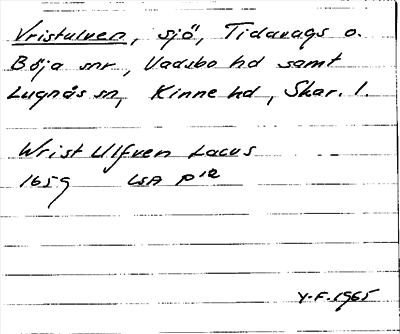 Vristulven, sjö, Tidavads o.
Böja snr, Vadsbo hd samt
Lugnås sn, Kinne hd, Skar. l.
Wrist Ulfven Lacus
1659 LSA P 12
Y.F. 1965